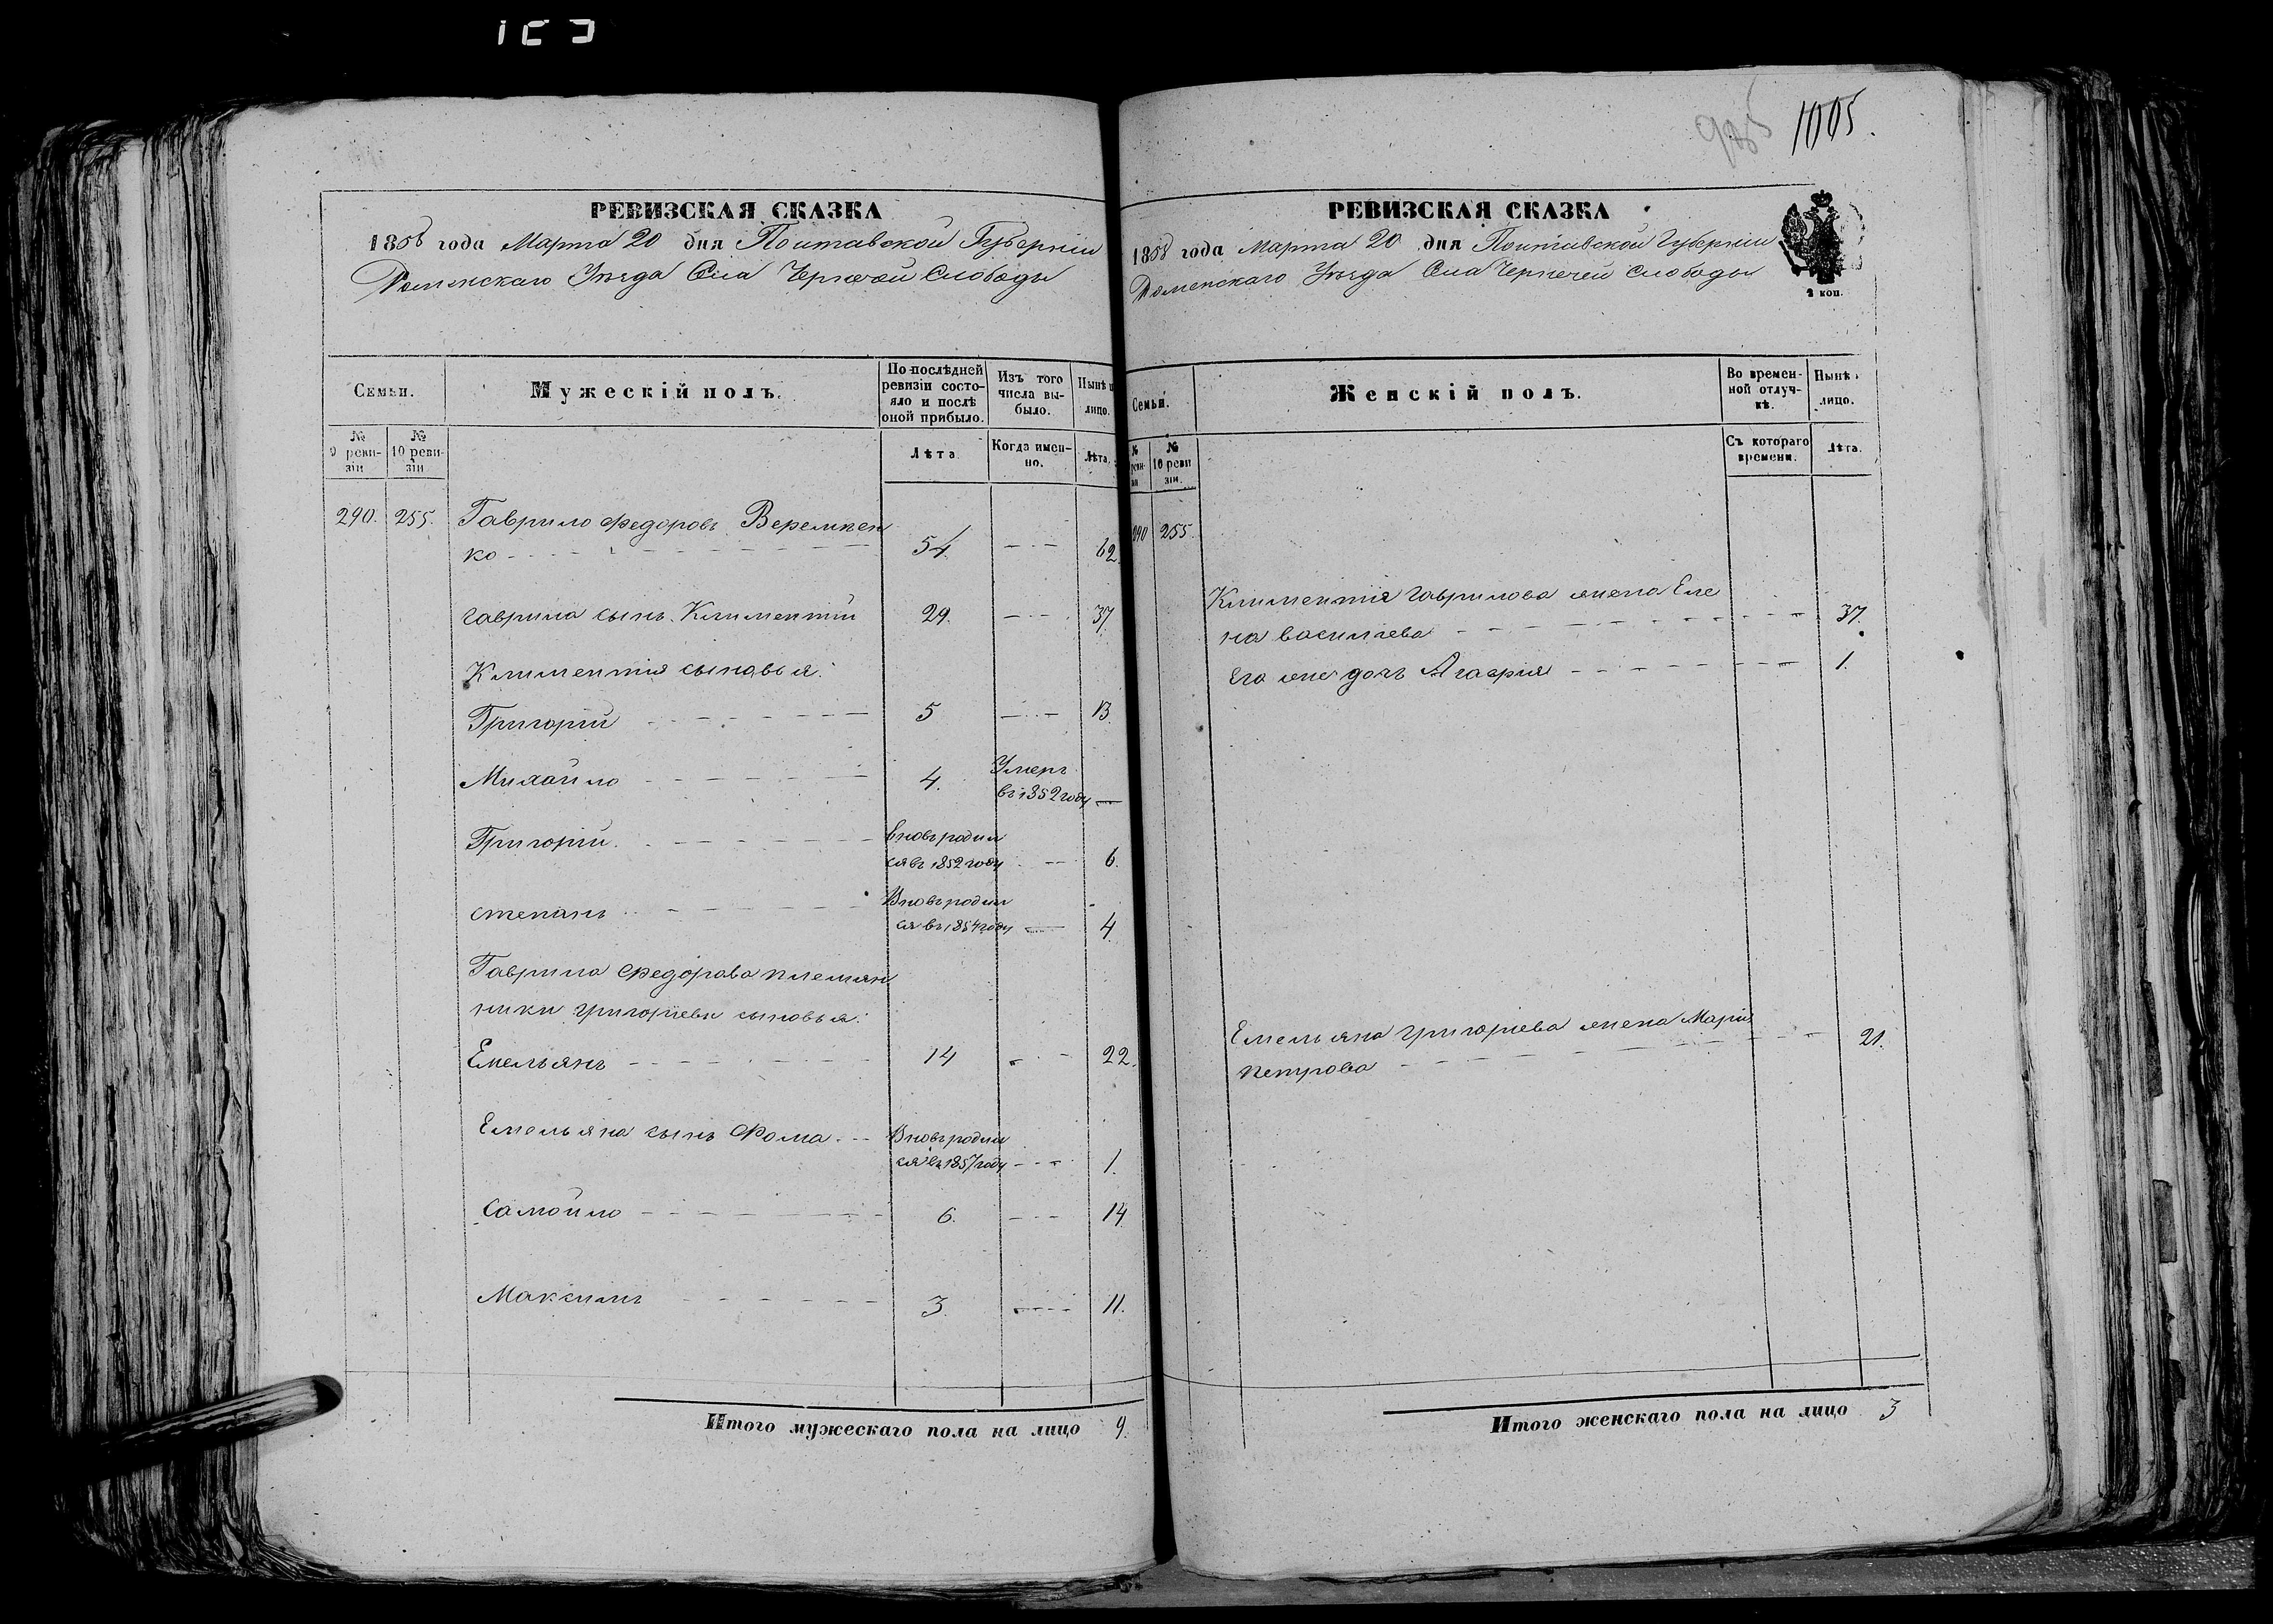 985 1005.
РЕВИЗСКАЯ СКАЗКА
1858 года Марта 20 дня Полтавской Губерніи
Роменскаго Уѣзда Села Чернечей Слободы
Семьи.
Мужескій полъ.
По послѣдней ревизіи состояло и послѣ оной прибыло.
Изъ того числа выбыло.
Нынѣ на лицо.
№ 9 реви-зіи
№ 10 реви-зіи
Лѣта
Когда имен-но.
Лѣта.
290. 255. Гаврило Федоровъ Веремѣен
ко 54. 62
Гаврила сынъ Климентій 29. 37
Климентія сыновья:
Григорій 5 13.
Михайло 4. Умеръ въ 1852 году
Григорій. вновь родился въ 1852 году 6.
Степанъ Вновь родился въ 1854 году 4
Гаврила Федорова племян
ники Григорьевы сыновья:
Емельянъ 14 22.
Емельяна сынъ Фома Вновь родился въ 1857 году 1.
Самойло 6. 14
Максимъ 3. 11.
Итого мужескаго пола на лицо 9.
РЕВИЗСКАЯ СКАЗКА
1858 года Марта 20 дня Полтавской Губерніи
Роменскаго Уѣзда Села Чернечей Слободы
2 коп.
Семьи.
Женскій полъ.
Во времен-ной отлуч-кѣ.
Нынѣ на лицо.
№ 10 реви зіи.
Съ котораго времени.
Лѣта.
290 255.
Климентія Гаврилова жена Еле
на Васильева 37.
Его же дочь Агафия 1.
Емельяна Григорьева жена Марія
Петрова 21.
Итого женскаго пола на лицо 3